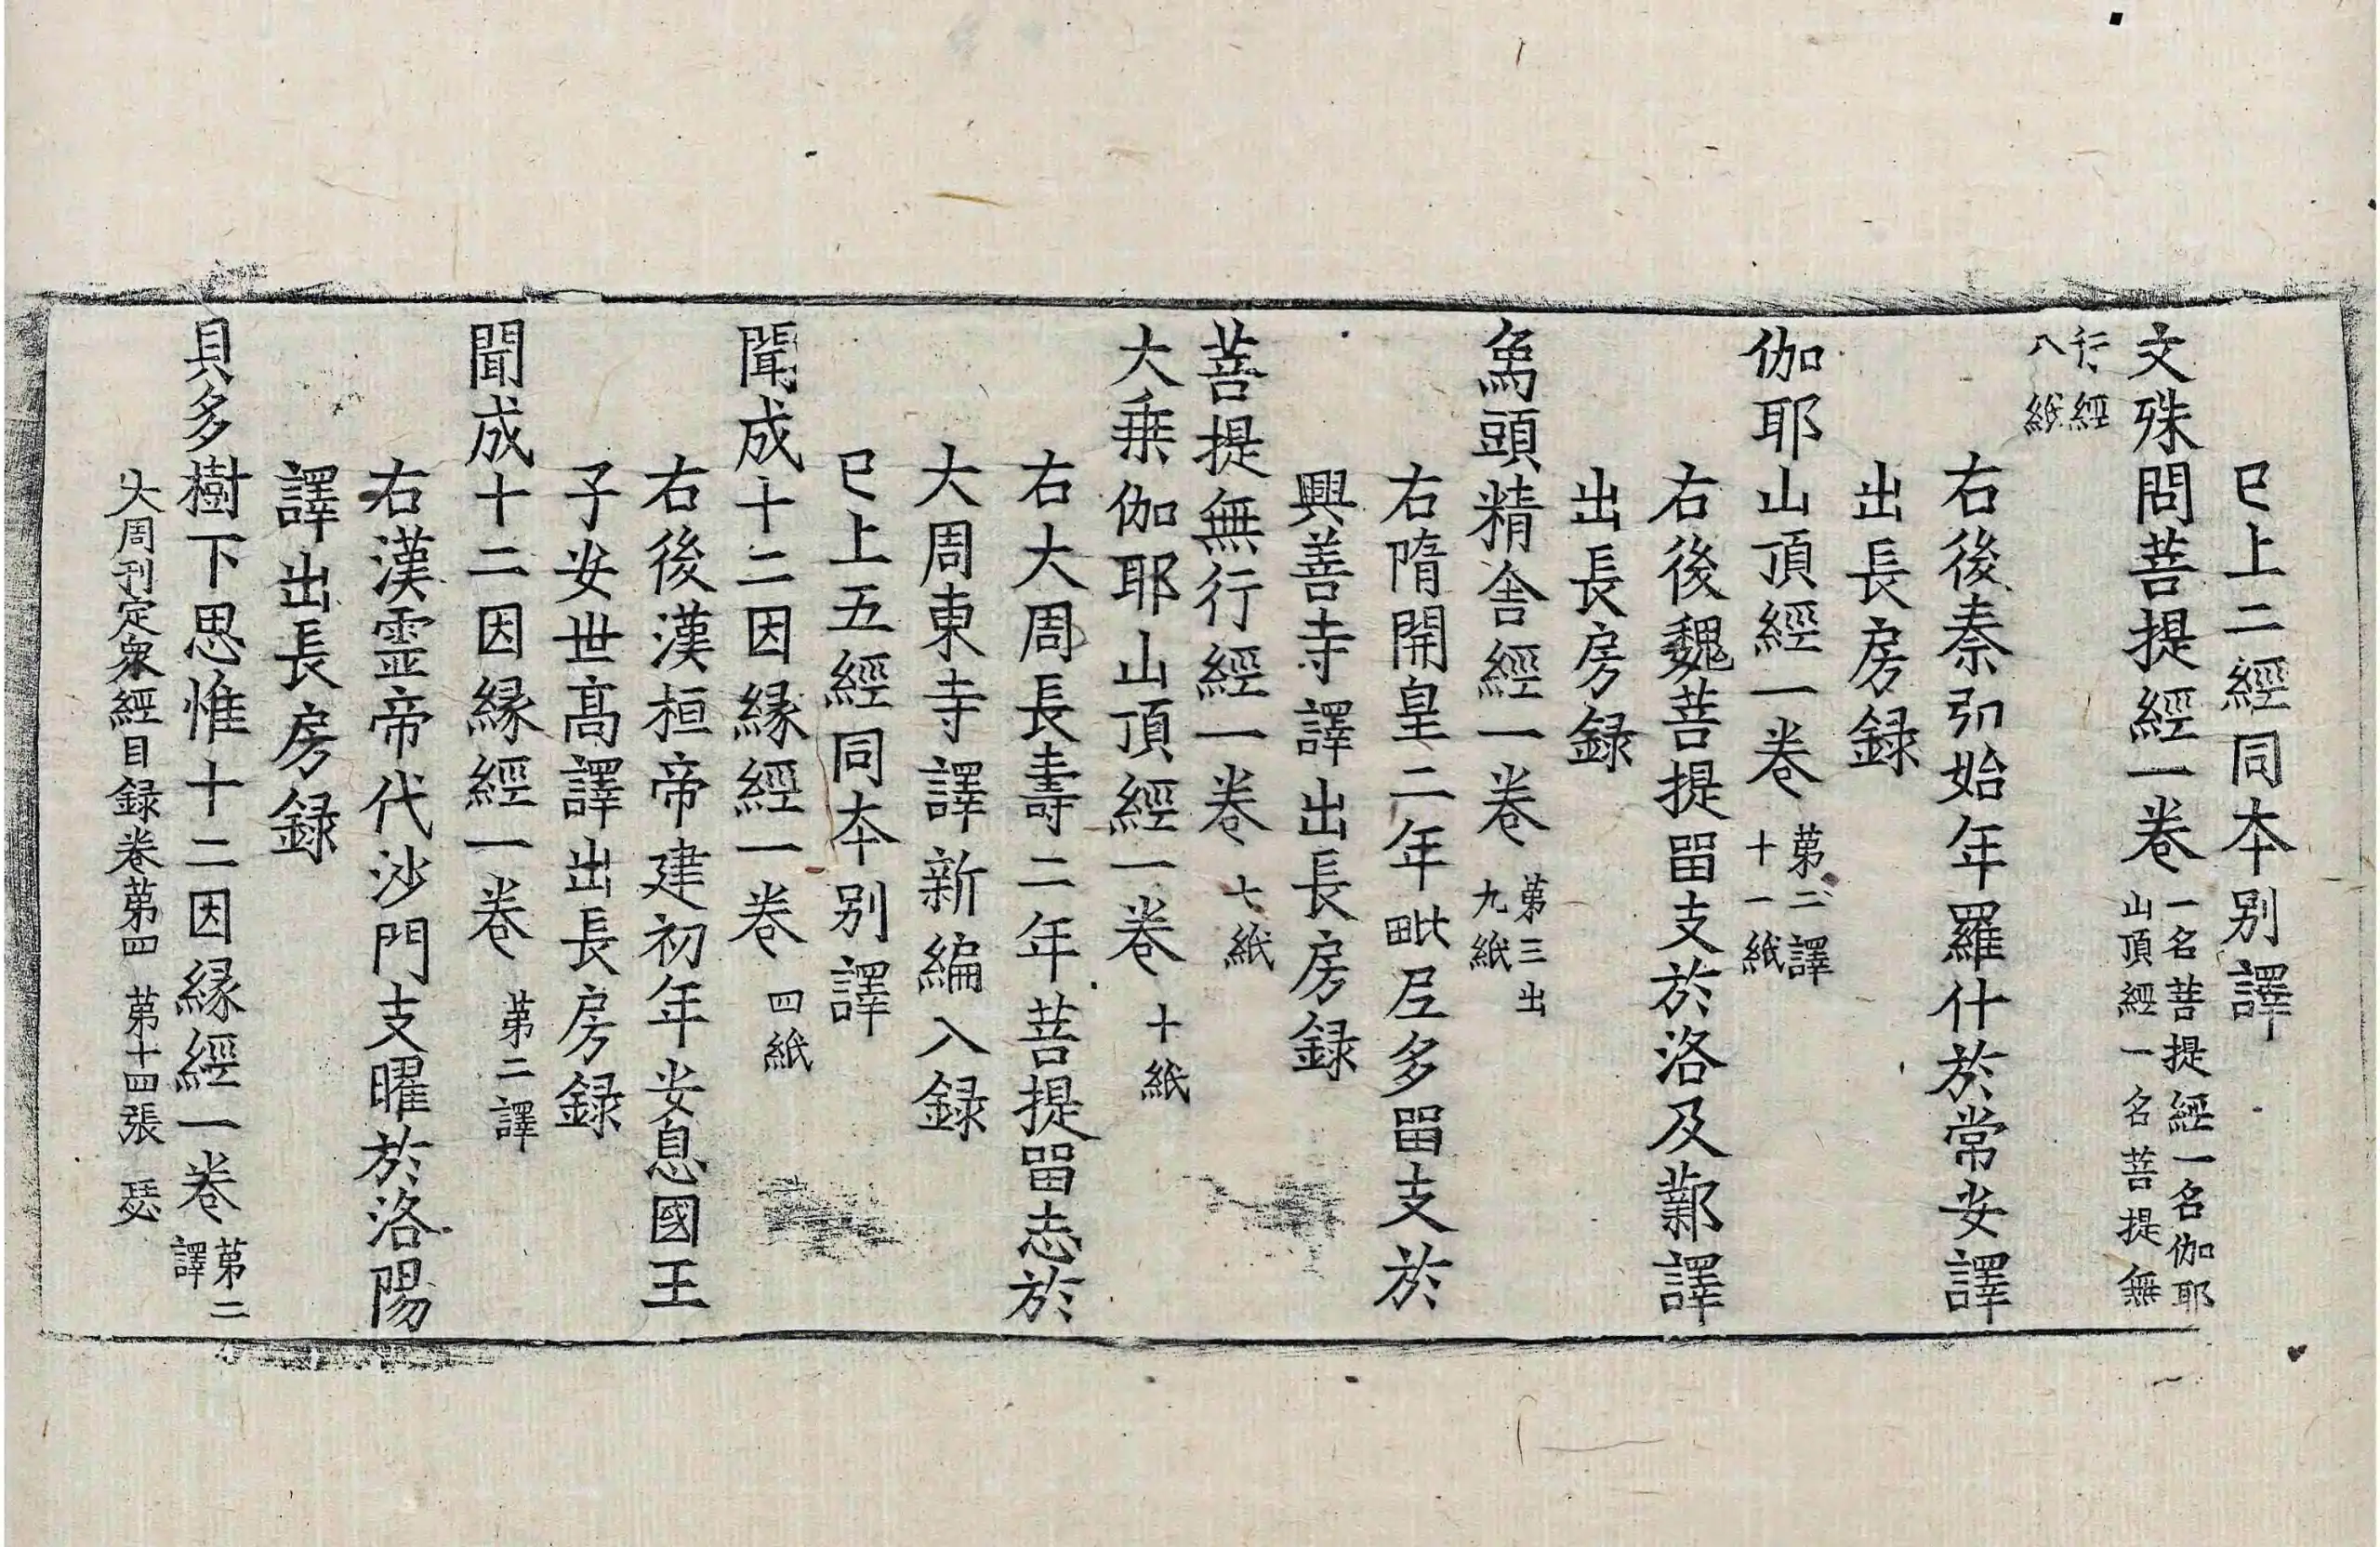 已上二經同本别譯
文殊問菩提經一卷一名菩提經一名伽耶山頂經一名菩提無
行經八紙
右後秦弘始年羅什於常安譯
出長房録
伽耶山頂經一卷第二譯十一紙
右後魏菩提留支於洛及鄴譯
出長房録
烏頭精舍經一卷第三出九紙
右隋開皇二年毗尼多留支於
興善寺譯出長房録
菩提無行經一卷七紙
大乗伽耶山頂經一卷十紙
右大周長壽二年菩提留志於
大周東寺譯新編入録
已上五經同本别譯
聞成十二因縁經一卷四紙
右後漢桓帝建初年安息國王
子安世高譯出長房録
聞成十二因縁經一卷第二譯
右漢靈帝代沙門支曜於洛陽
譯出長房録
貝多樹下思惟十二因縁經一卷第二譯
大周刊定衆經目録卷第四 第十四張 瑟